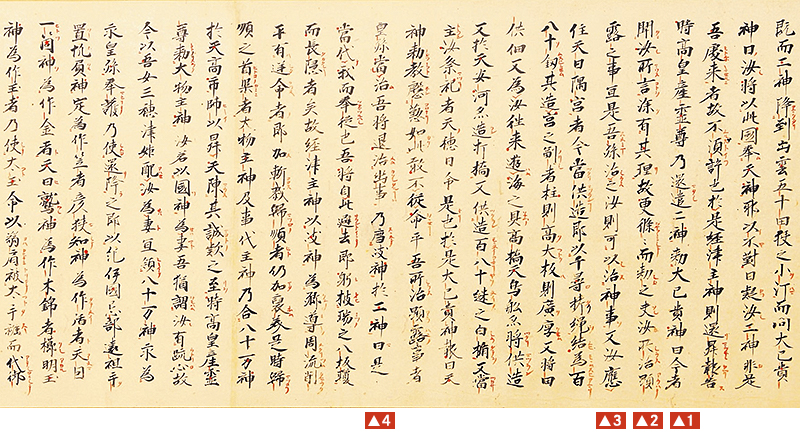 既而二神降到出雲五十田狹之小汀而問大己貴
神曰汝將以此國奉天神耶以不對曰疑汝二神非是
吾處来者故不須許也於是經津主神則還昇報告
時高皇産霊尊乃還遣二神勅大己貴神曰今者
聞汝所言深有其理故更條〻而勅之夫汝所治顕
露之事宜是吾孫治之汝則可以治神事又汝應
住天日隅宮者今當供造即以千尋栲縄結為百
八十紐其造宮之制者柱則高大板則廣厚又將田
供佃又為汝往来遊海之具高橋天鳥舩亦將供造
又於天安河亦造打橋又供造百八十縫之白楯又當
主汝祭祀者天穗日命是也於是大己貴神報曰天
神勅教慇懃如此敢不從命乎吾所治顕露事者
皇孫當治吾將退治幽事乃薦岐神於二神曰是
當代我而奉從也吾將自此避去即躬被瑞之八坂瓊
而長隠者矣故經津主神以岐神為郷導周流削
平有逆命者即加斬戮歸順者仍加褒美是時歸
順之首渠者大物主神及事代主神乃合八十万神
於天高市帥以昇天陳其誠款之至時高皇産霊
尊勅大物主神汝若以國神為妻吾猶謂汝有疏心故
今以吾女三穗津姫配汝為妻宜領八十万神永為
皇孫奉護乃使還降之即以紀伊國忌部遠祖手
置帆負神定為作笠者彦狹知神為作盾者天目
一箇神為作金者天日鷲神為作木綿者櫛明玉
神為作玉者乃使太玉命以弱肩被太手繦而代御
▲4 ▲3 ▲2 ▲1